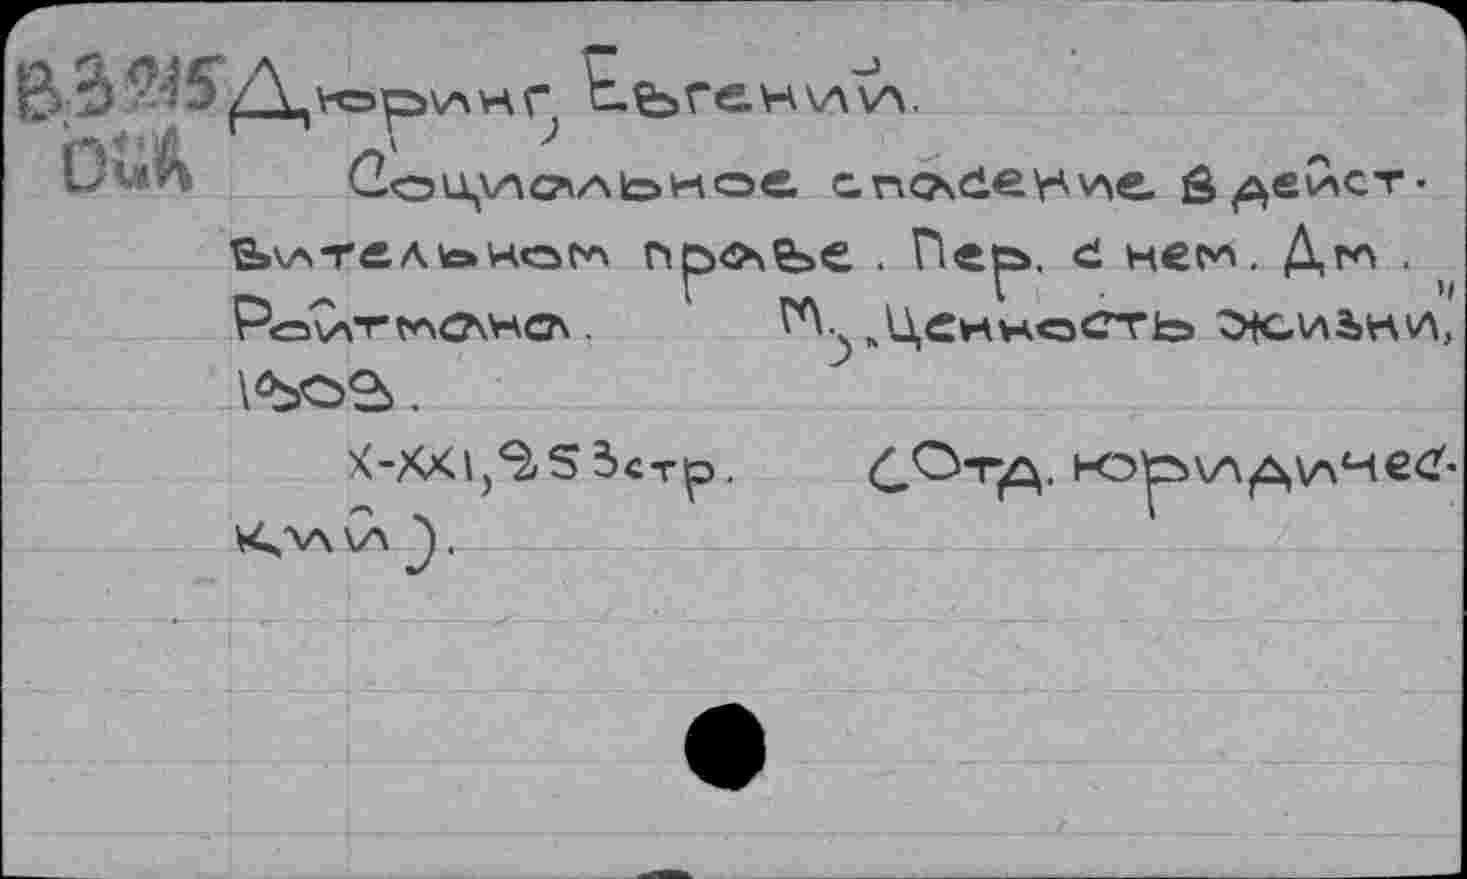 Дюринг, Евгений.
Социальное спасение в дейст-
вительном праве. Пер. с нем. Дм.
Ройтмана. М., „Ценность жизни",
1902.
X-XXI, 253 стр. (Отд. юридичес-
кий).